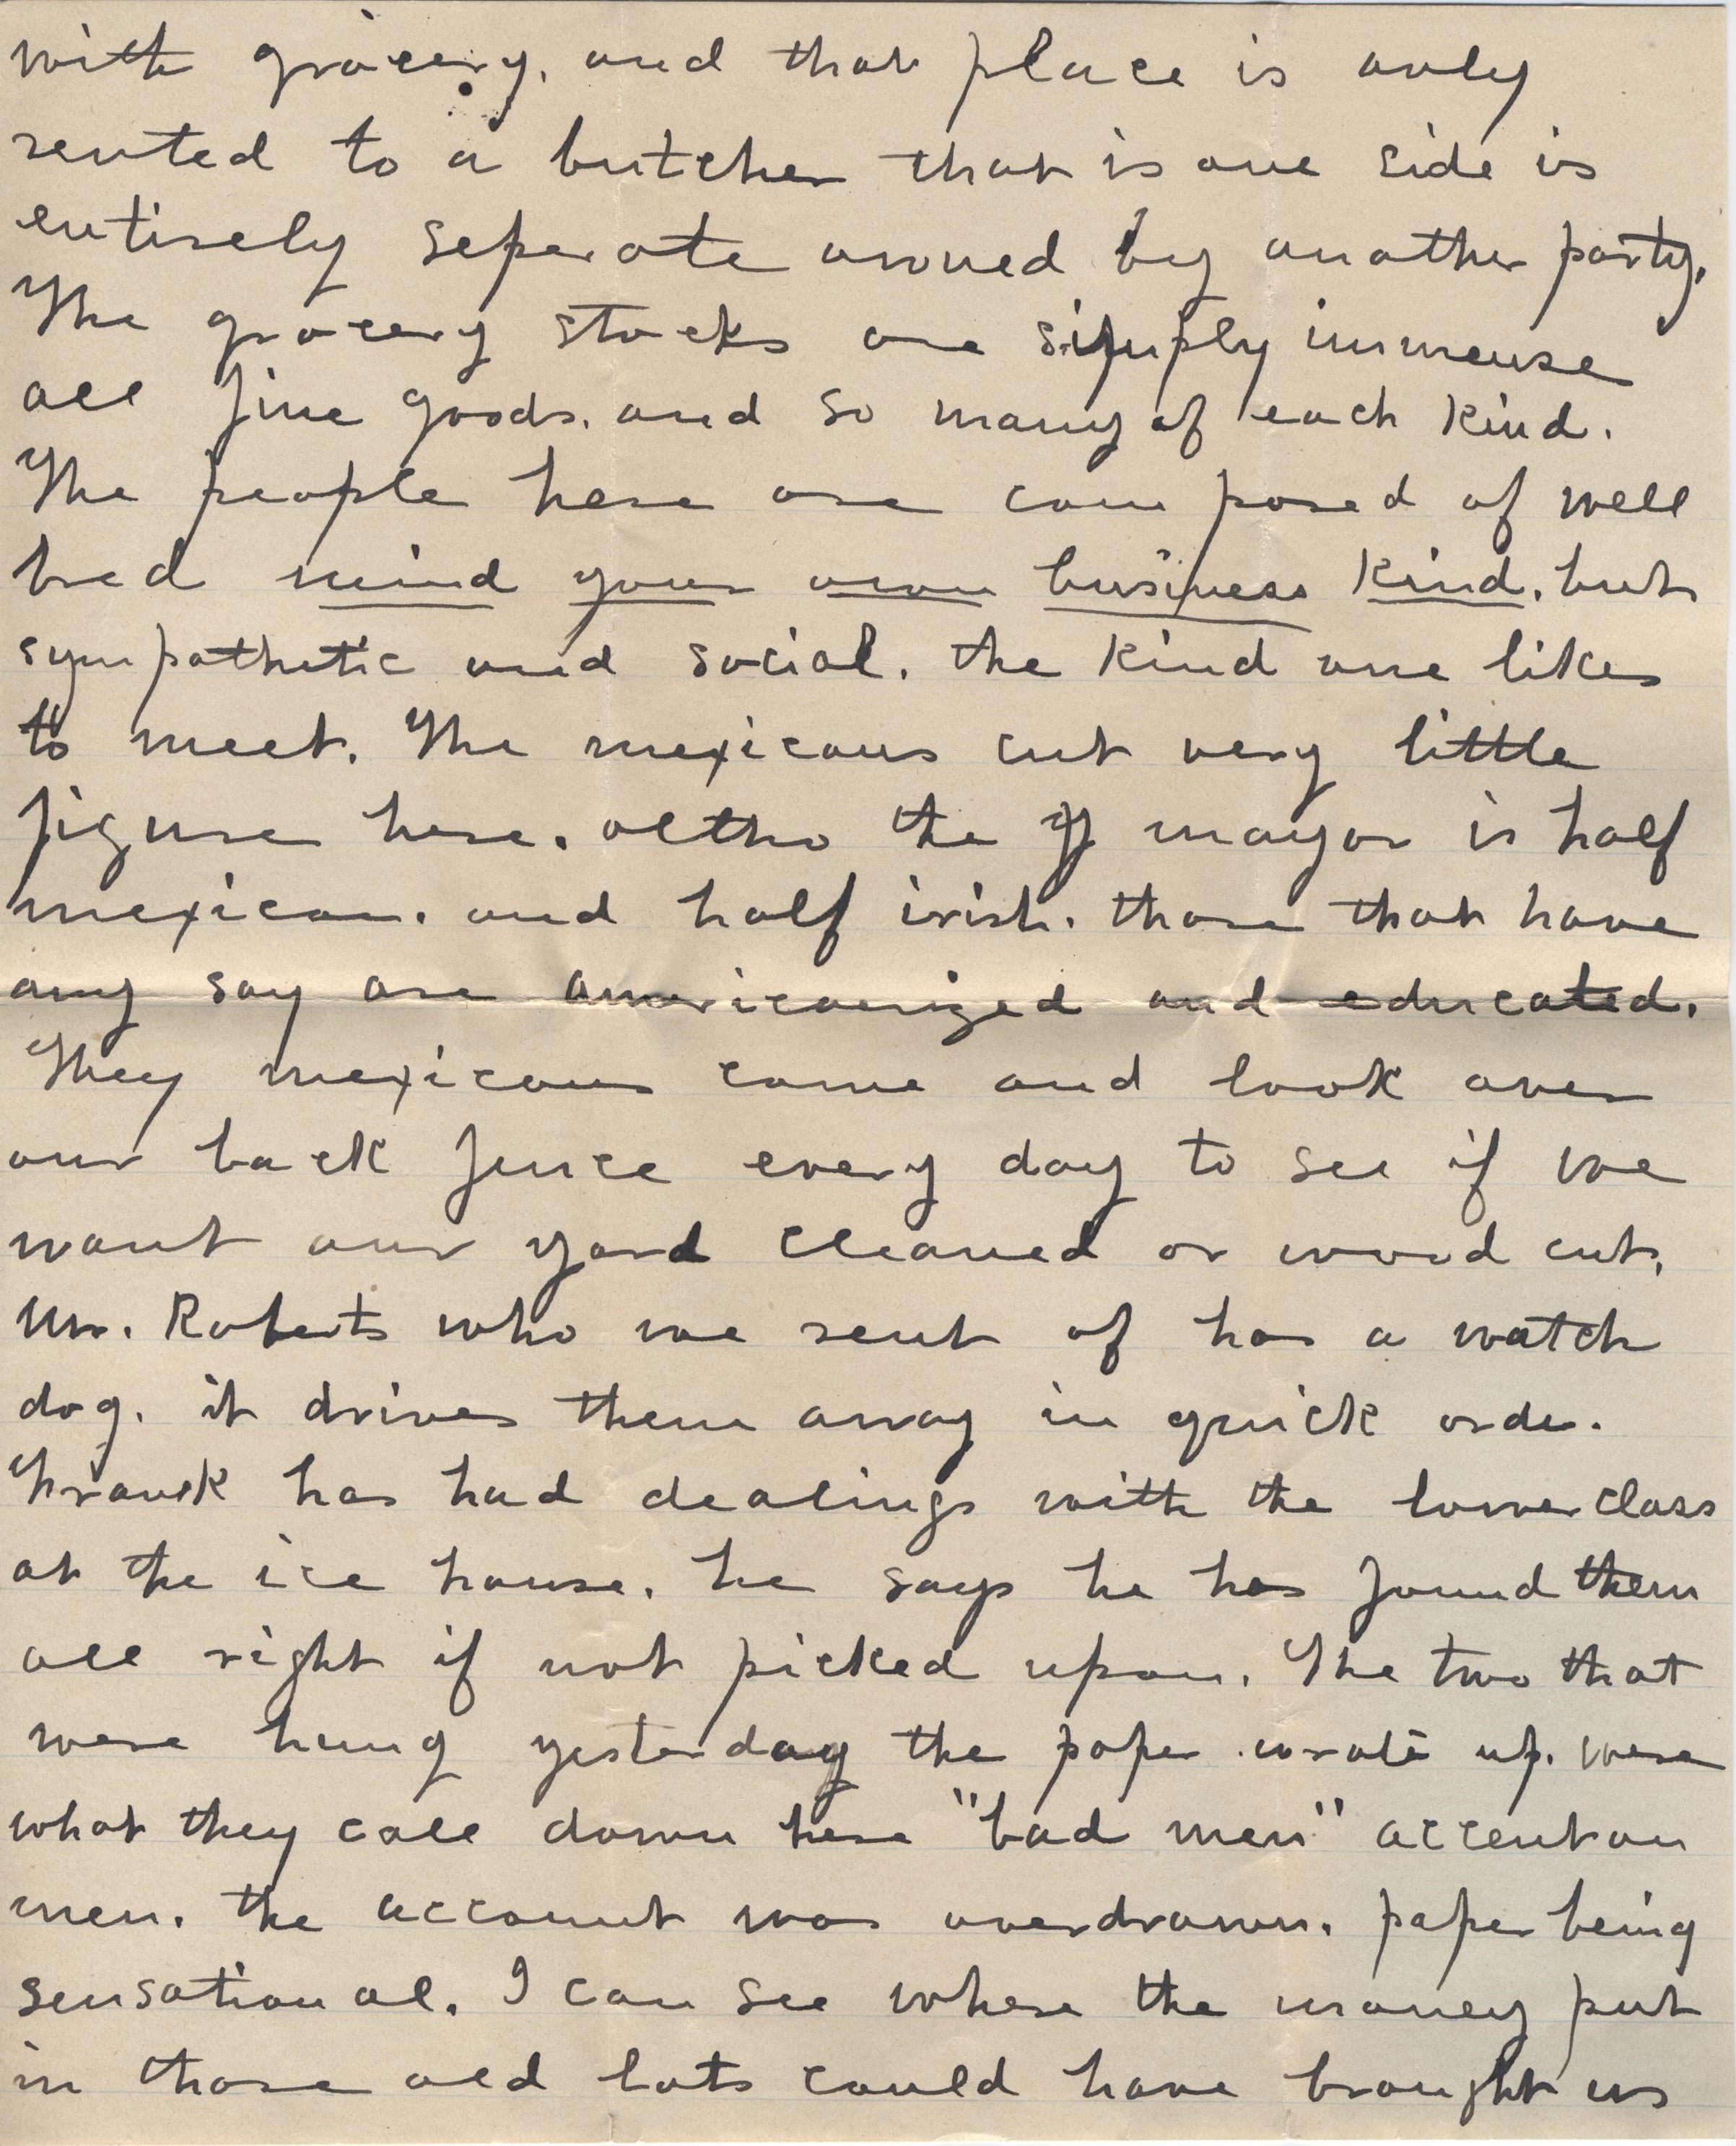 with grocery. and that place is only
rented to a butcher that is one side is
entirely seperate owned by another party.
The grocery stocks are simply immense
all fine goods. and so many of each kind.
The people here are composed of well
bred mind your own business kind. but
sympathetic and social. the kind one likes
to meet. The mexicans cut very little
figure here. altho the mayor is half
mexican. and half irish. those that have
any say are americanized and educated.
They mexicans come and look over
our back fence every day to see if we
want our yard cleaned or wood cut.
Mr. Roberts who we rent of has a watch
dog. it drives them away in quick order.
Frank has had dealings with the lower class
at the ice house. he says he has found them
all right if not picked upon. The two that
were hung yesterday the paper wrote up. were
what they call down here "bad men" accent on
men. the account was overdrawn. paper being
sensational. I can see where the money put
in those old lots could have brought us